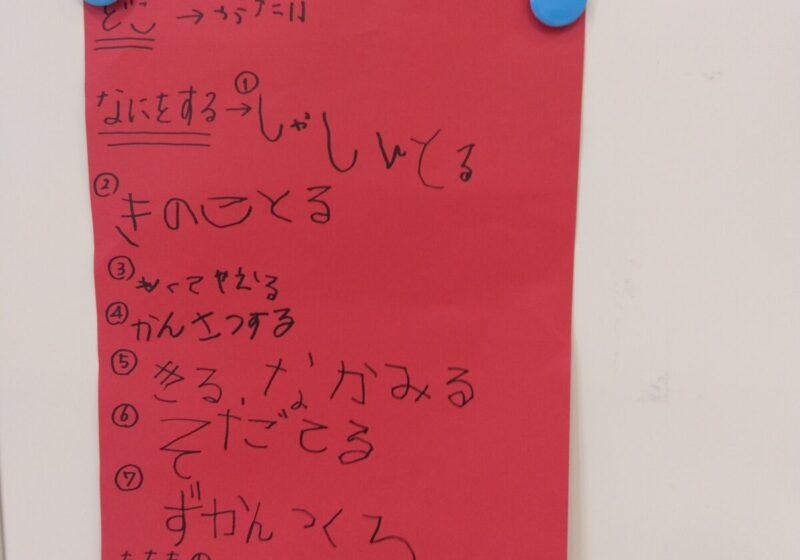 どこ →
なにをする→①しゃしんとる
②きのことる
③もってかえる
④かんさつする
⑤きる、なかみる
⑥そだごてる
⑦ずかんつくろ